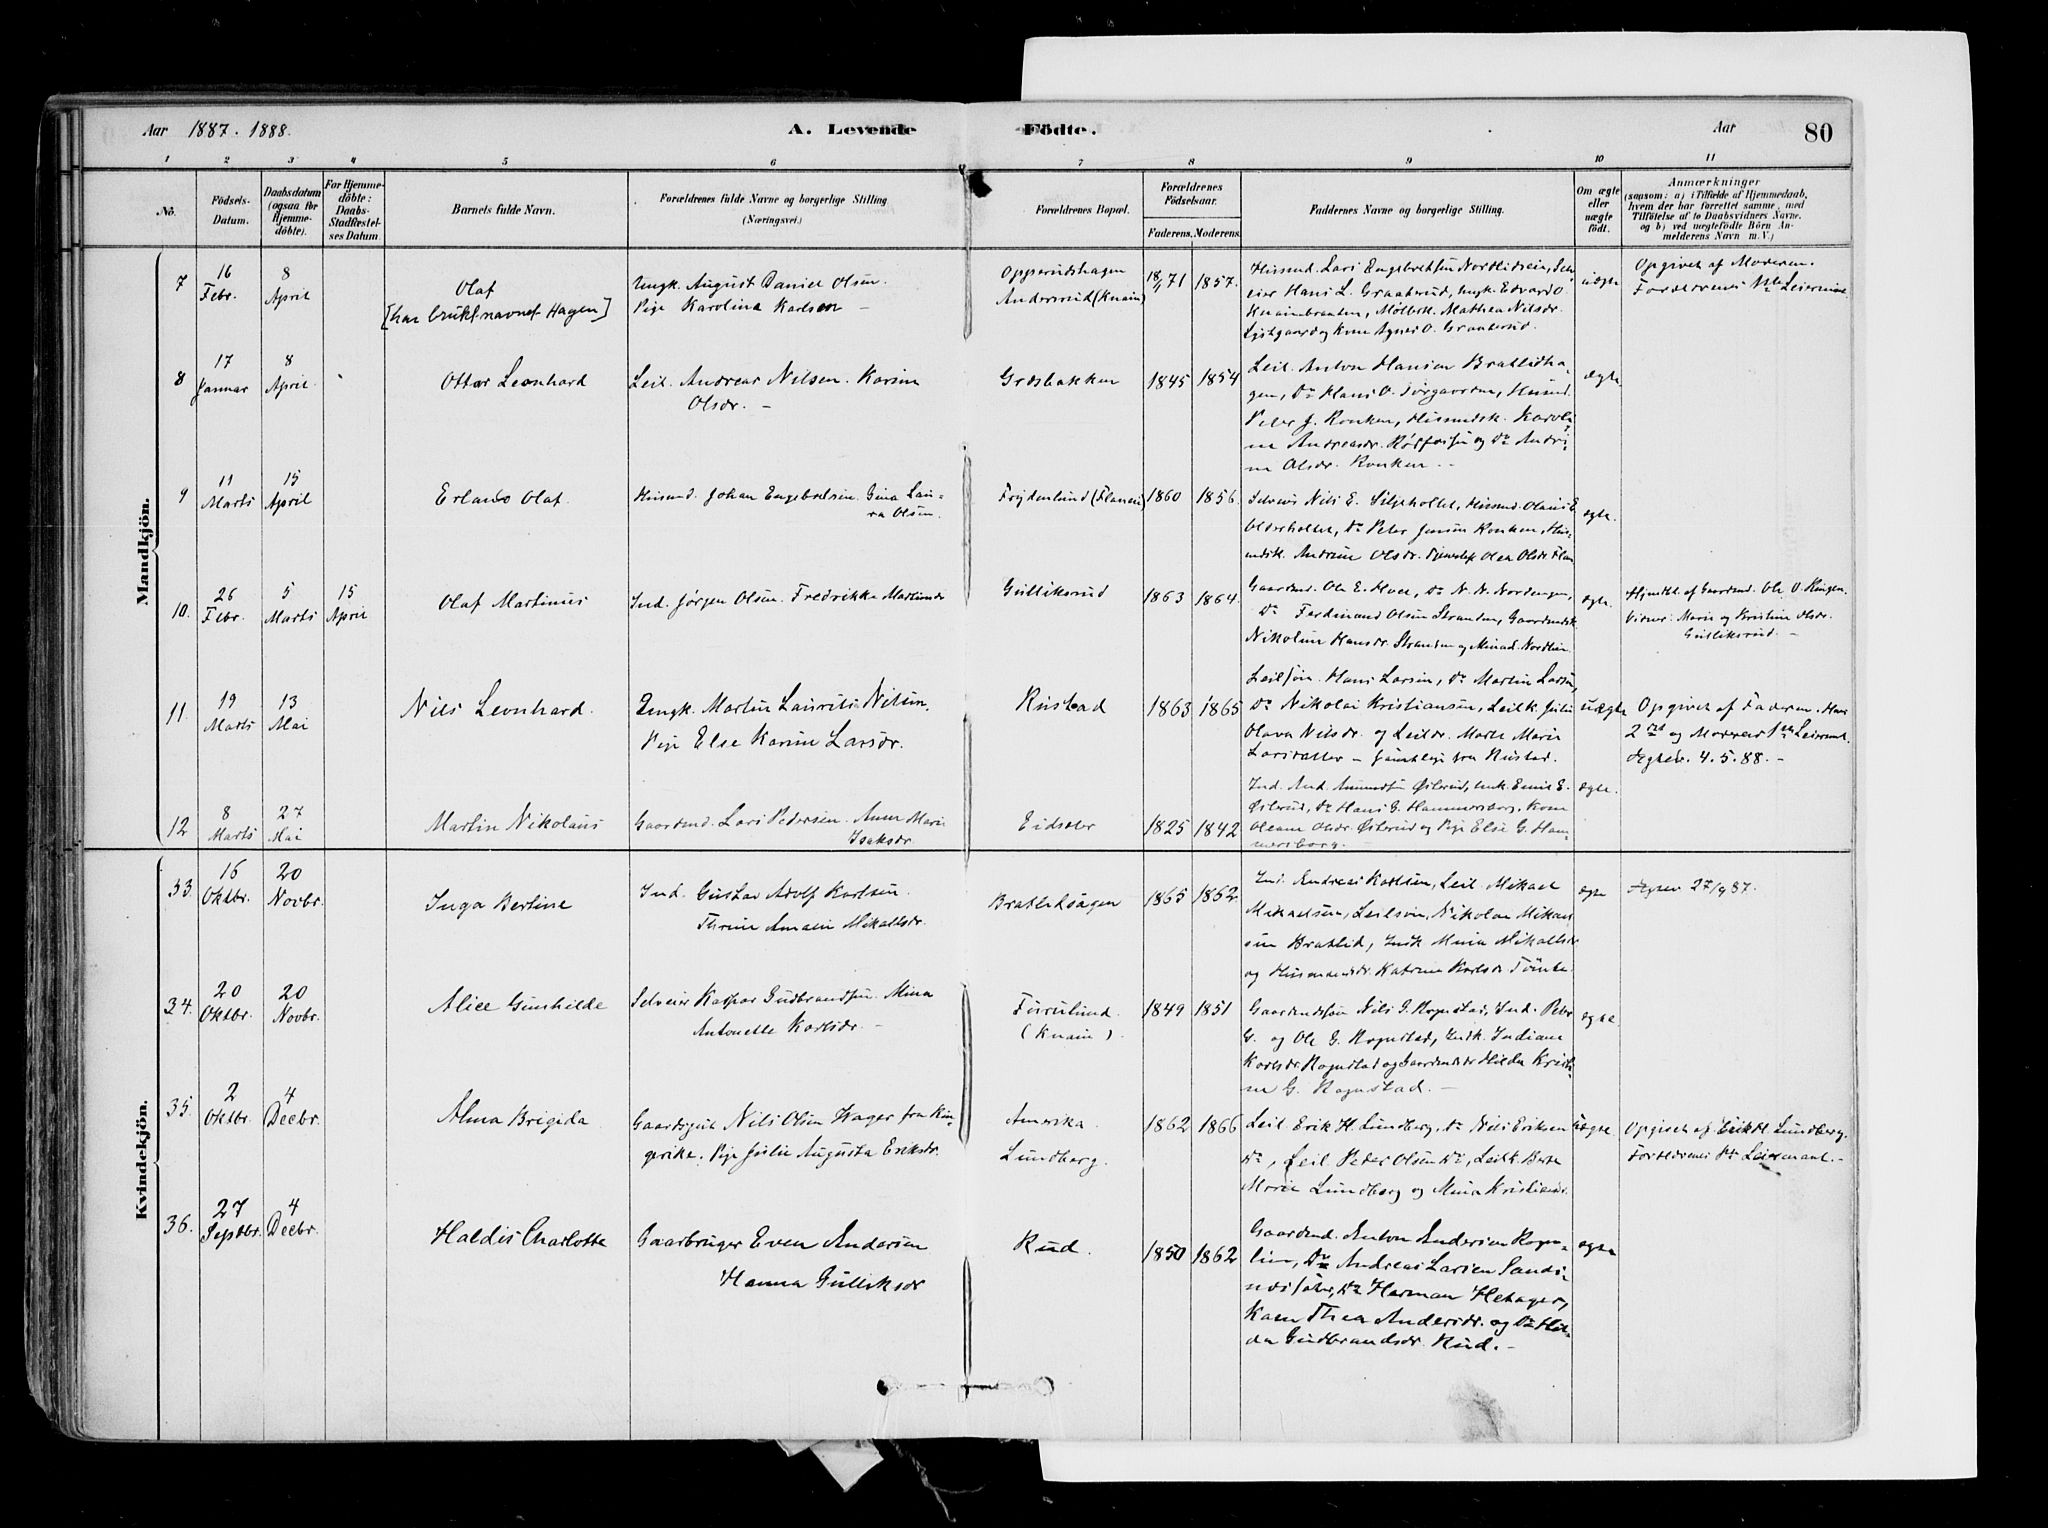 Aar 1887. 1888. A. Levende Födte. Aar 80
1 2 3 4 5 6 7 8 9 10 11
No. Födsels-Datum. Daabsdatum (ogsaa for Hjemme-döbte). For Hjemme-döbte: Daabs-Stadfæstel-ses Datum Barnets fulde Navn. Forældrenes fulde Navne og borgerlige Stilling (Næringsvei.) Forældrenes Bopæl. Forældrenes Födselsaar. Faderens. Moderens. Faddernes Navne og borgerlige Stilling. Om ægte eller uægte födt. Anmærkninger
(saasom: a) i Tilfælde af Hjemmedaab,
hvem der har forrettet samme, med
Tilföielse af to Daabsvidners Navne,
og b) ved uægtefödte Börn An-
melderens Navn m. V.)
Mandkjön.
7 16 Febr. 8 April Olaf
[har brukt navnet Hagen]
Ungk. August Daniel Olsen
Pige Karolina Karlsen
Oppserudshagen
Andersrud (Knain)
18/1 71 1857.
Husmd. Lars Engebretsen Nordlideie, Sel-
eier Hans L. Graaberud, Ungk. Edvard O.
Knainbraaten, Mølb.sk. Mathea Nilsdr.
Lystgaard og Kone Agnes O. Graaberud.
uægte
Opgivet af Moderen.
Forældrenes 1ste Leiermaal
8 17 Januar 8 April. Ottar Leonhard
Leil. Andreas Nilsen. Karine
Olsdr. –
Græsbakken 1845 1854
Leil. Anton Hansen Bratlidha-
gen, Do Hans O. Torgaarden, Husmd.
Peter J. Konken, Husmdsk. Karoli-
ne Andreasdr. og Do Andri-
ne Olsdr. Konken. –
ægte
9 11 Marts 15 April Erland Olaf.
Husmd. Johan Engebretsen. Gina Lau-
ra Olsen.
Frydenlund (Flaen) 1860 1856.
Selveier Nils E. Siljeholtet, Husmd. Olaus E.
Olderholtet, Do Peter Jensen Konken, Hus-
mdsk. Andrine Olsdr. Olea Olsdr. Flaen
ægte.
10. 26 Febr. 5 Marts 15 April Olaf Martinus
Ind. Jørgen Olsen. Fredrikke Martinsdr
Gulliksrud 1863 1864.
Gaardmd. Ole E. Hval, Do N. N. Nordengen,
Do Ferdinand Olsen Stranden, Gaardmdsk.
Nikoline Hansdr. Stranden og Nordlien.
ægte.
Hjmdbt. af Gaardmd. Ole O. Ringen.
Vidner: Marie og Kristine Olsdr.
Gulliksrud. –
11. 19 Marts 13 Mai Nils Leonhard.
Ungk. Martin Laurits Nilsen.
Pige Else Karine Larsdr.
Rustad 1863 1865
Leilsøn. Hans Larsen, Do Martin Larsen,
Do Nikolai Kristiansen, Leilk. Julie
Olava Nilsdr. og Leildr. Marte Marie
Larsdatter – samtlige fra Rustad.
uægte
Opgivet af Faderen. Hans
2det og Moderens 1ste Leiermaal.
Ægtev. 4.5.88. –
12 8 Marts 27 Mai Martin Nikolaus
Gaardmd. Lars Pedersen. Anne Marie
Isaksdr.
Eidselv 1825 1842
Ind. And. Amundsen Østerud, Ungk. Emil E.
Østerud, Do Hans G. Hammersborg, Kone
Oleane Olsdr. Østerud og Pige Else G. Ham-
mersborg. –
ægte.
Kvindekjön.
33. 16 Oktbr. 20 Novbr. Inga Bertine
Ind. Gustav Adolf Karlsen.
Thrine Amalie Mikalsdr.
Bratlihagen 1865 1862.
Ind. Andreas Karlsen, Leil. Mikael
Mikaelsen, Leilsøn, Nikolai Mikael-
sen Bratlid, Indk Mina Mikalsdr
og Husmandsdr. Katrine Karlsdr Tömte.
ægte
Ægtev. 27/9 87.
34. 20 Oktbr. 20 Novbr. Alice Gunhilde
Selveier Kaspar Gudbrandsen. Mina
Antonette Karlsdr. –
Furulund.
(Knain).
1849 1851
Gaardmdssøn Nils G. Rognstad, Ind. Peter
G. og Ole G. Rognstad, Indk. Indiane
Karlsdr. Rognstad og Gaardmdsdr Hilda Kristi-
ne G. Rognstad. –
ægte.
35. 2 Oktbr. 4 Decbr. Alma Brigida
Gaardsgut Nils Olsen Hager fra Rin-
gerike. Pige Julie Augusta Eriksdr.
Amerika.
Lundberg.
1862 1866
Leil. Erik H. Lundberg, Do Nils Eriksen
Do, Leil. Peder Olsen Do, Leilk. Berte
Marie Lundberg og Mina Kristiansdr.
uægte.
Opgivet af Erik H. Lundberg.
Forældrenes 1ste Leiermaal. –
36. 27 Septbr. 4 Decbr. Haldis Charlotte
Gaardbruger Even Andersen
Hanna Gulliksdr
Rud. 1850 1862
Gaardmd. Anton Andersen Rogn-
lien, Do Andreas Larsen Sand-
, Do Herman Hetager,
Kone Thea Andersdr. og Do Hil-
da Gudbrandsdr. Rud. –
ægte